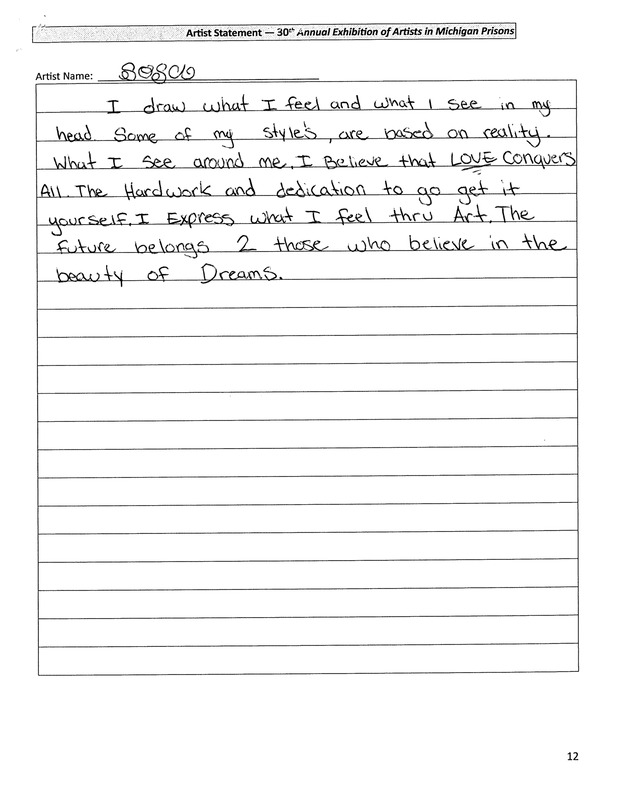 Artist Statement — 30th Annual Exhibition of Artists in Michigan Prisons
Artist Name: BOSCO
I draw what I feel and what I see in my
head. Some of my style's, are based on reality.
What I see around me. I Believe that LOVE Conquers
All. The Hardwork and dedication to go get it
yourself. I Express what I feel thru Art. The
future belongs 2 those who believe in the
beauty of Dreams.
12